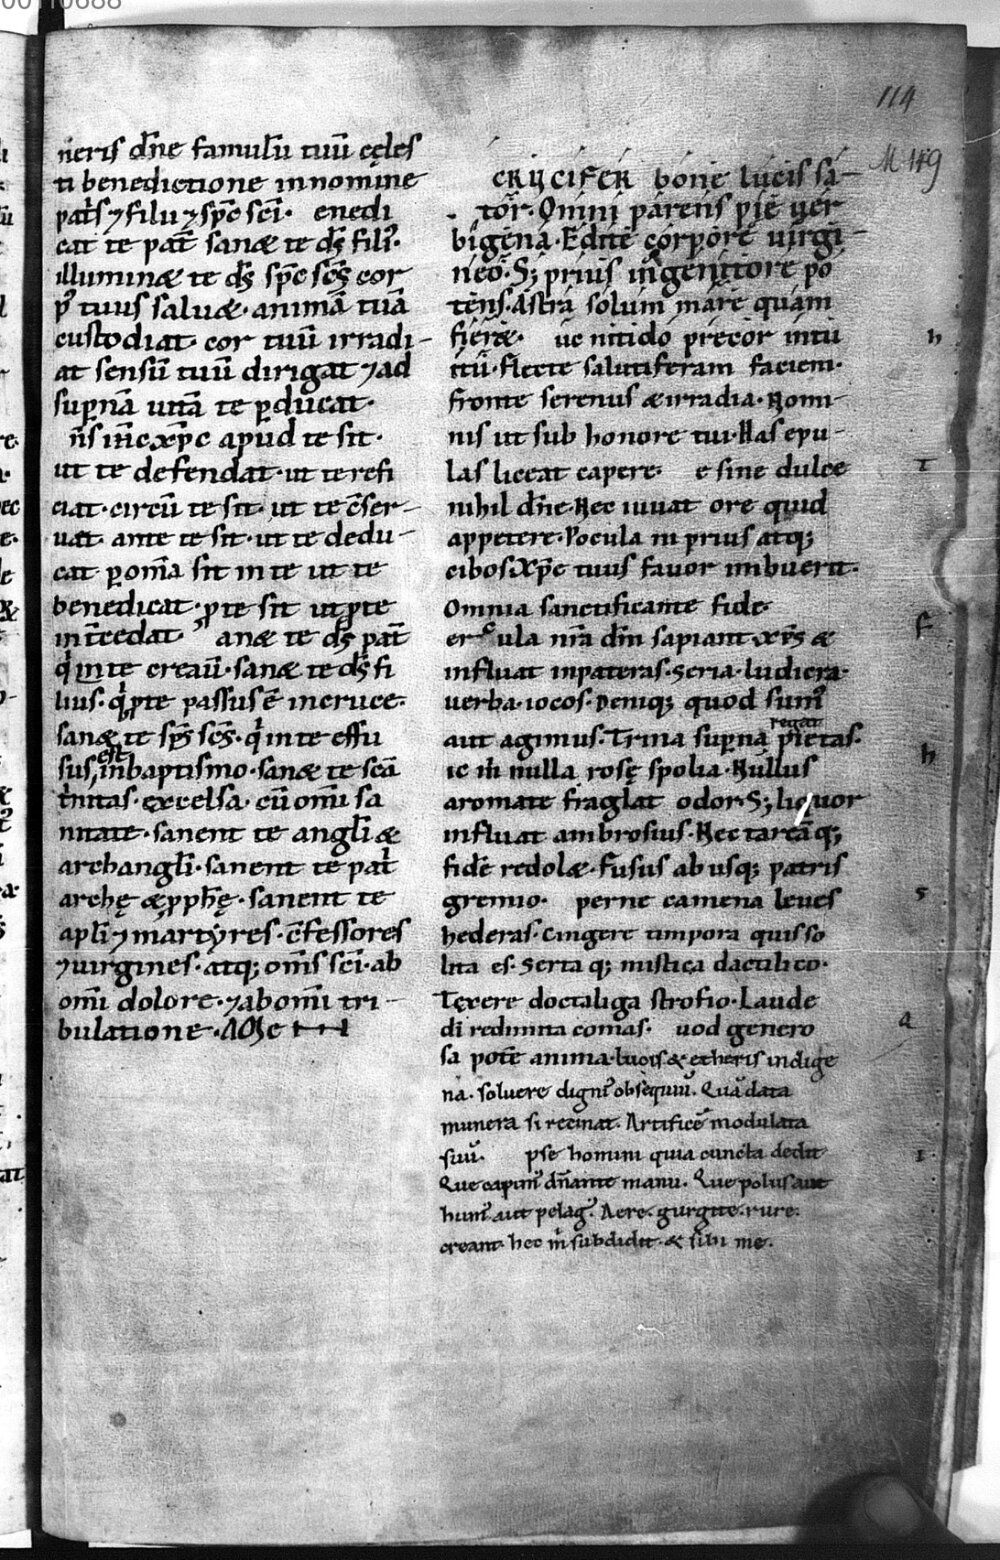 00110688
114
M 119
neris dñe famulũ tuũ cęles
ti benedictione innomine
pat̃s ⁊ filii ⁊ sp̃c sc̃i· enedi
cat te pat̃ sanæ te dς̃ fili᾿·
illuminæ te dς̃ sp̃c sc̃ς cor
p᾿ tuus saluæ· animã tuã
custodiat· cor tuũ irradi-
at sensũ tuũ dirigat ⁊ ad
sup̱nã uitã te p̱ducat·
ñs ih̃c xp̃c apud te sit·
ut te defendat· ut te refi
ciat· circũ te sit· ut te c̃ser-
uat· ante te sit· ut te dedu-
cat p̱ om̃a sit in te ut te
benedicat· p̱te sit ut p̱te
int̃cedat· anæ te dς̃ pat̃
q᾿ in te creauit· sanæ te dς̃ fi
lius· q᾿ p̱te passus ẽ incruce·
sanæ te sp̃s sc̃ς· q᾿ in te effu
sus est inbaptismo· sanæ te scã
t̃nitas· excelsa· cũ omi sa
nitate· sanent te angl̃i æ
archangl̃i· sanent te pat̃
archę æ p̱ph̃ę· sanent te
apl̃i ⁊ martyres· c̃fessores
⁊ uirgines· atq; om̃s sc̃i· ab
om̃i dolore· ⁊ abom̃i tri-
bulatione· AMe
CRUCIFER bone lucis sa-
tor· Omni parens pie uer
bigena· Edite corpore uirgi-
neo· S; prius ingenitore po
tens· Astra solum mare quam
fieræ· uc nitido precor intu
itũ· flecte salutiferam faciem·
fronte serenus æ irradia· Nomi-
nis ut sub honore tui· Has epu-
las liceat capere· e sine dulce
nihil dñe· Nec iuuat ore quid
appetere· Pocula ni prius atq;
cibos· Xp̃c tuus fauor imbuerit·
Omnia sanctificante fide·
er ula nr̃a dm̃ sapiant xp̃s æ
influat inpateras· Seria· ludicra·
uerba· iocos· Deniq; quod sum᾿
aut agimus· Trina sup̱na regat pietas·
ic m̃ nulla rosę spolia· Nullus
aromate fraglat odor· S; liquor
influat ambrosius· Nectareãq;
fidẽ redolæ· Fusus ab usq; patris
gremio· perne camena leues
hederas· Cingere timpora quis so
lita es· Serta q; mistica dactilico·
Texere docta liga strofio· Laude
di redimita comas· uod genero
sa potẽ anima· lucis & etheris indige
na· soluere dignũ obsequiũ· Quã data
munera si recinat· Artificẽ modulata
suũ· pse homini quia cuncta dedit
Que capim᾿ dñante manu· Que polus aut
hum᾿ aut pelag᾿· Aere· gurgite· rure·
creant· hec m̃ subdidit· & sibi me·
h
T
f
h
s
q
I